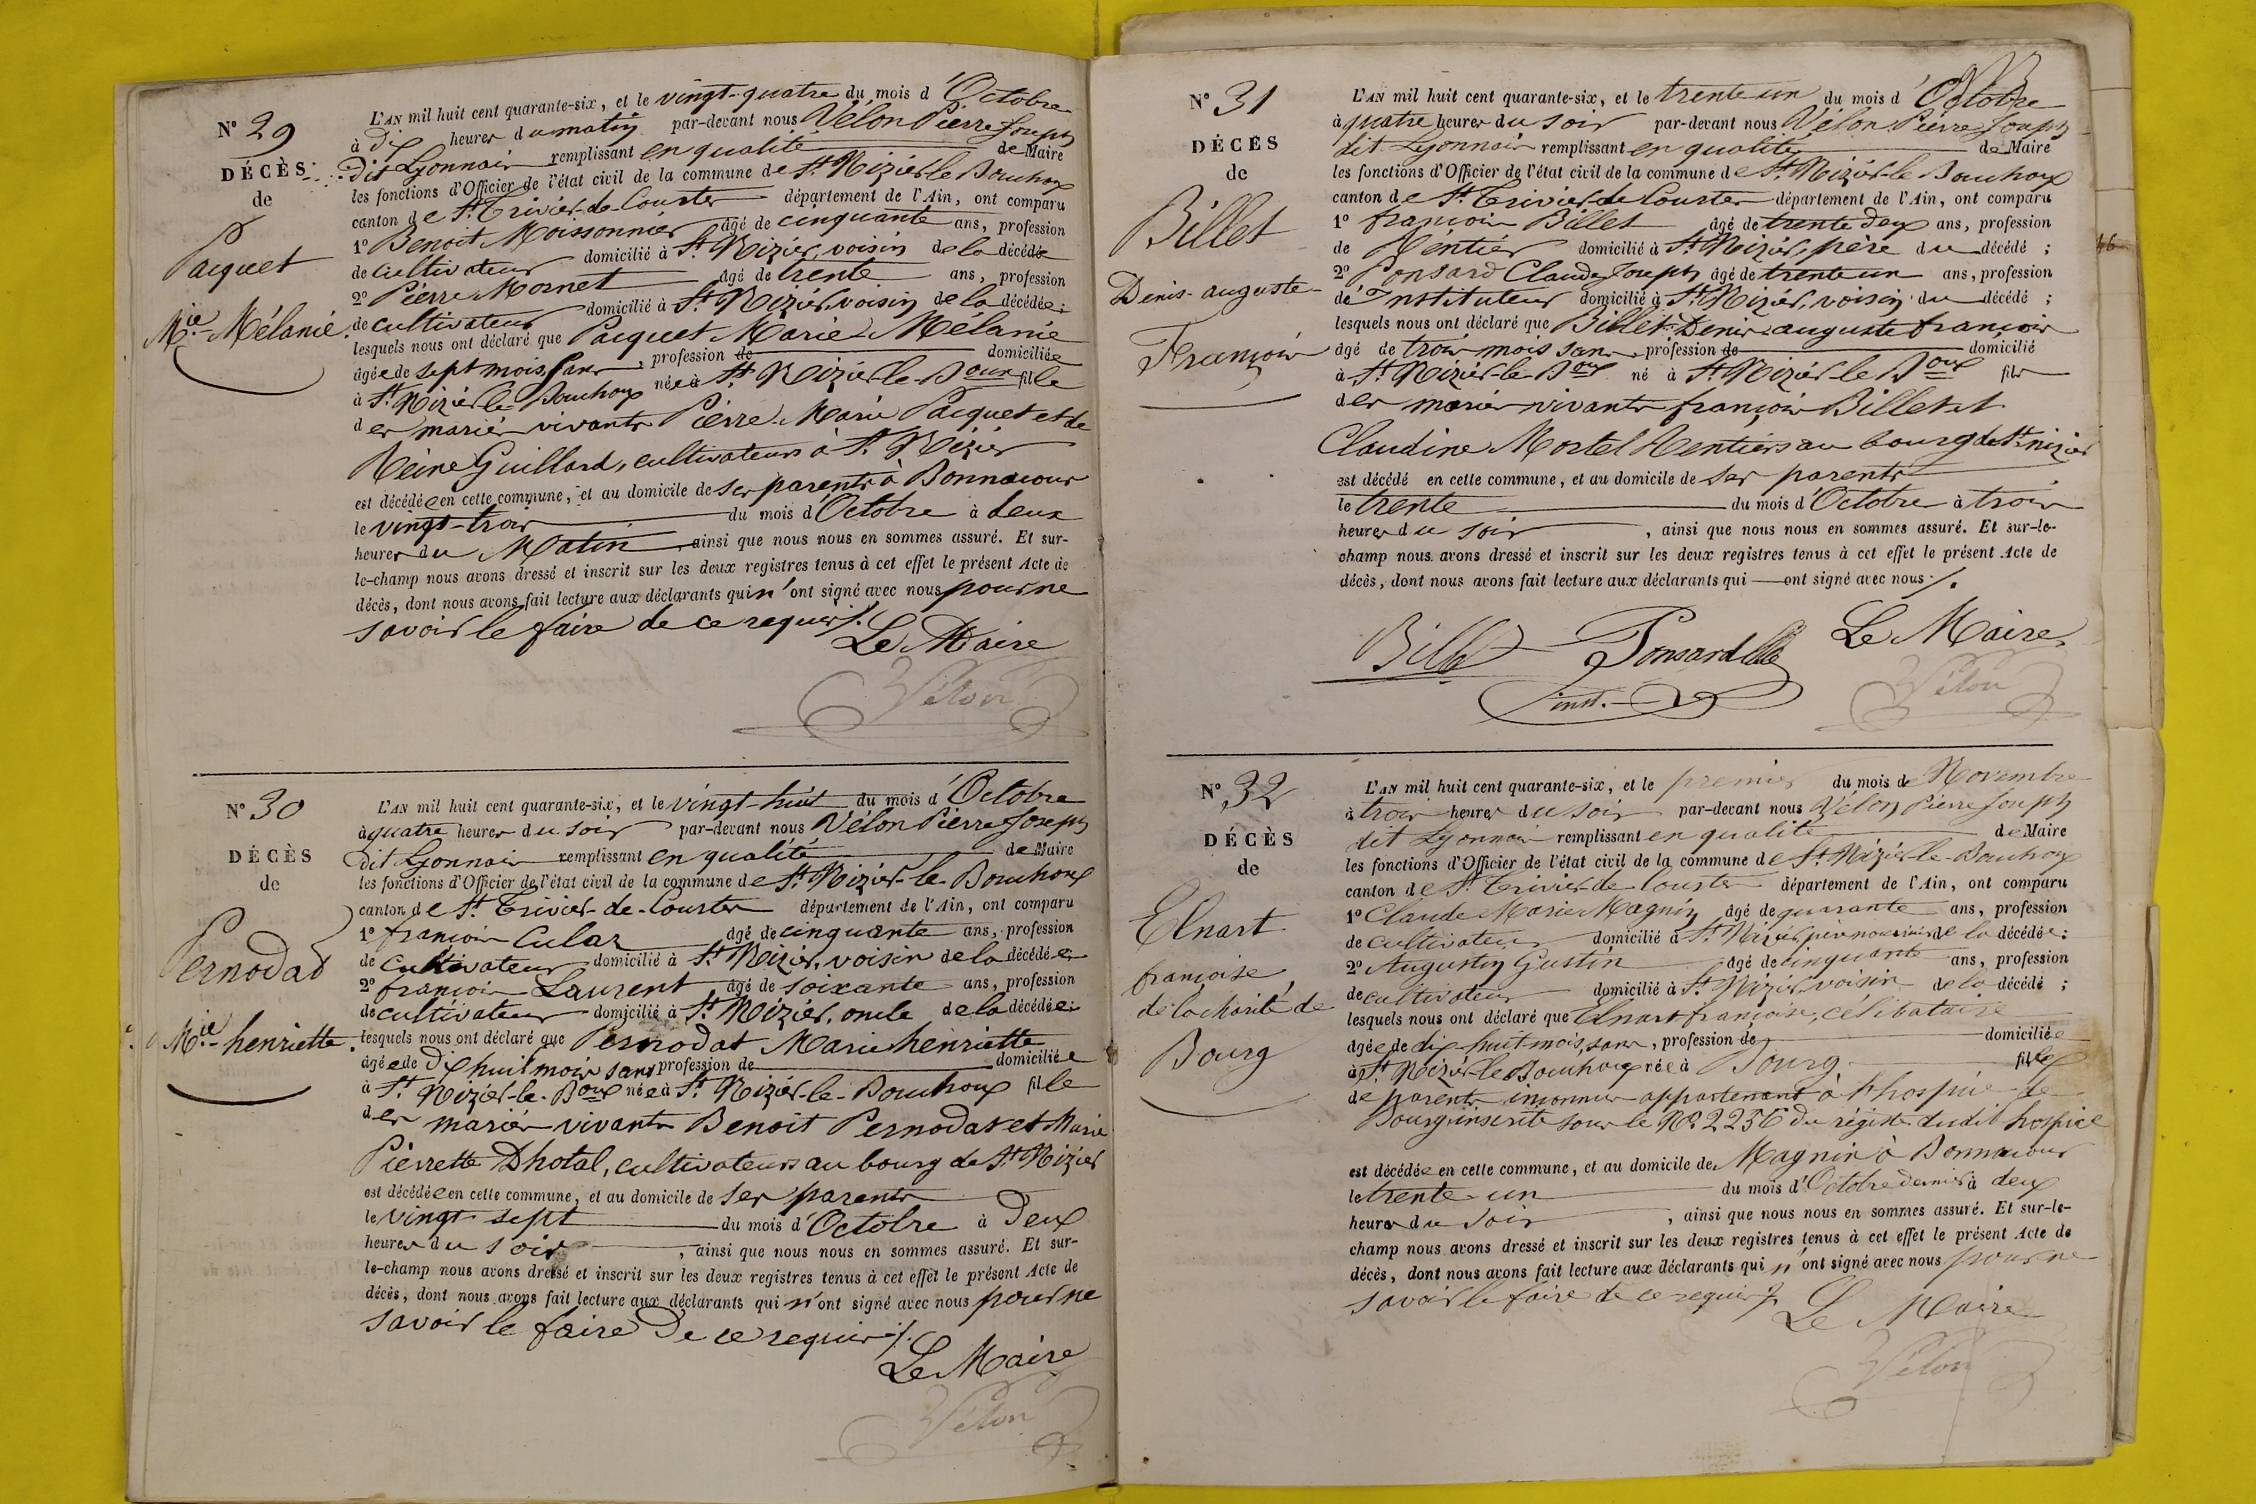 N° 29
DÉCÈS
de
Pacquet
Mie. Mélanie.
L'AN mil huit cent quarante-six, et le vingt-quatre du mois d'Octobre
à dix heures du matin par-devant nous Vélon Pierre Joseph
dit Lyonnais remplissant en qualité de Maire
les fonctions d'Officier de l'état civil de la commune de St. Nizier le Bouhoux
canton de St. Trivier-de-Courtes département de l'Ain, ont comparu
1° Benoit Moissonnier âgé de cinquante ans, profession
de cultivateur domicilié à St. Nizier, voisin de la décédée
2° Pierre Mornet âgé de trente ans, profession
de cultivateur domicilié à St. Nizier, voisin de la décédée;
lesquels nous ont déclaré que Pacquet Marie Mélanie
âgée de sept mois sans profession de domiciliée
à St. Nizier le Bouhoux née à St. Nizier-le-Boux fille
des mariés vivants Pierre Marie Pacquet et de
Reine Guillard, cultivateurs à St. Nizier
est décédée en cette commune, et au domicile de ses parents à Bonnacour
le vingt-trois du mois d'Octobre à deux
heures du Matin ainsi que nous nous en sommes assuré. Et sur-
le-champ nous avons dressé et inscrit sur les deux registres tenus à cet effet le présent Acte de
décès, dont nous avons fait lecture aux déclarants qui n'ont signé avec nous pour ne
savoir le faire de ce requis ./.
Le Maire
Vélon
N° 30
DÉCÈS
de
Pernodat
Mie. henriette.
L'AN mil huit cent quarante-six, et le vingt-huit du mois d'Octobre
à quatre heures du soir par-devant nous Vélon Pierre Joseph
dit Lyonnais remplissant en qualité de Maire
les fonctions d'Officier de l'état civil de la commune de St. Nizier-le-Bouhoux
canton de St. Trivier-de-Courtes département de l'Ain, ont comparu
1° françois Culas âgé de cinquante ans, profession
de cultivateur domicilié à St. Nizier, voisin de la décédée
2° françois Laurent âgé de soixante ans, profession
de cultivateur domicilié à St. Nizier, oncle de la décédée;
lesquels nous ont déclaré que Pernodat Marie henriette
âgée de dix huit mois sans profession de domiciliée
à St. Nizier-le-Boux née à St. Nizier-le-Bouhoux fille
des mariés vivants Benoit Pernodat et Marie
Pierrette Dhotal, cultivateurs au bourg de St. Nizier
est décédée en cette commune, et au domicile de ses parents
le vingt sept du mois d'Octobre à deux
heures du soir, ainsi que nous nous en sommes assuré. Et sur-
le-champ nous avons dressé et inscrit sur les deux registres tenus à cet effet le présent Acte de
décès, dont nous avons fait lecture aux déclarants qui n'ont signé avec nous pour ne
savoir le faire de ce requis ./.
Le Maire
Vélon
N° 31
DÉCÈS
de
Billet
Denis-auguste-
François
L'AN mil huit cent quarante-six, et le trente un du mois d'Octobre
à quatre heures du soir par-devant nous Vélon Pierre Joseph
dit Lyonnais remplissant en qualité de Maire
les fonctions d'Officier de l'état civil de la commune de St. Nizier-le-Bouhoux
canton de St. Trivier de Courtes département de l'Ain, ont comparu
1° françois Billet âgé de trente deux ans, profession
de Rentier domicilié à St. Nizier, père du décédé;
2° Ponsard Claude Joseph âgé de trente un ans, profession
de Instituteur domicilié à St. Nizier, voisin du décédé;
lesquels nous ont déclaré que Billet Denis auguste françois
âgé de trois mois sans profession de domicilié
à St. Nizier-le-Boux né à St. Nizier-le Boux fils
des mariés vivants françois Billet et
Claudine Mortel Rentiers au bourg de St. nizier
est décédé en cette commune, et au domicile de ses parents
le trente du mois d'Octobre à trois
heures du soir, ainsi que nous nous en sommes assuré. Et sur-le-
champ nous avons dressé et inscrit sur les deux registres tenus à cet effet le présent Acte de
décès, dont nous avons fait lecture aux déclarants qui ont signé avec nous ./.
Billet Ponsard Le Maire
inst. Vélon
46
N° 32
DÉCÈS
de
Elnart
françoise,
de la charité de
Bourg
L'AN mil huit cent quarante-six, et le premier du mois de Novembre
à trois heures du soir par-devant nous Vélon Pierre Joseph
dit Lyonnais remplissant en qualité de Maire
les fonctions d'Officier de l'état civil de la commune de St. Nizier-le-Bouhoux
canton de St. Trivier de Courtes département de l'Ain, ont comparu
1° Claude Marie Magnin âgé de quarante ans, profession
de cultivateur domicilié à St. Nizier, père nourricier de la décédée;
2° Augustin Gustin âgé de cinquante ans, profession
de cultivateur domicilié à St. Nizier voisin de la décédé;
lesquels nous ont déclaré que Elnart françoise, célibataire
âgée de dix huit mois, sans, profession de domiciliée
à St. Nizier-le Bouhoux née à Bourg fille
de parents inconnus appartenant à l'hospice de
Bourg, inscrite sous le N° 2256 du régistre dudit hospice
est décédée en cette commune, et au domicile de Magnin à Bonnacour
le trente-un du mois d'Octobre dernier à deux
heures du soir, ainsi que nous nous en sommes assuré. Et sur-le-
champ nous avons dressé et inscrit sur les deux registres tenus à cet effet le présent Acte de
décès, dont nous avons fait lecture aux déclarants qui n'ont signé avec nous pour ne
savoir le faire de ce requis ./.
Le Maire
Vélon